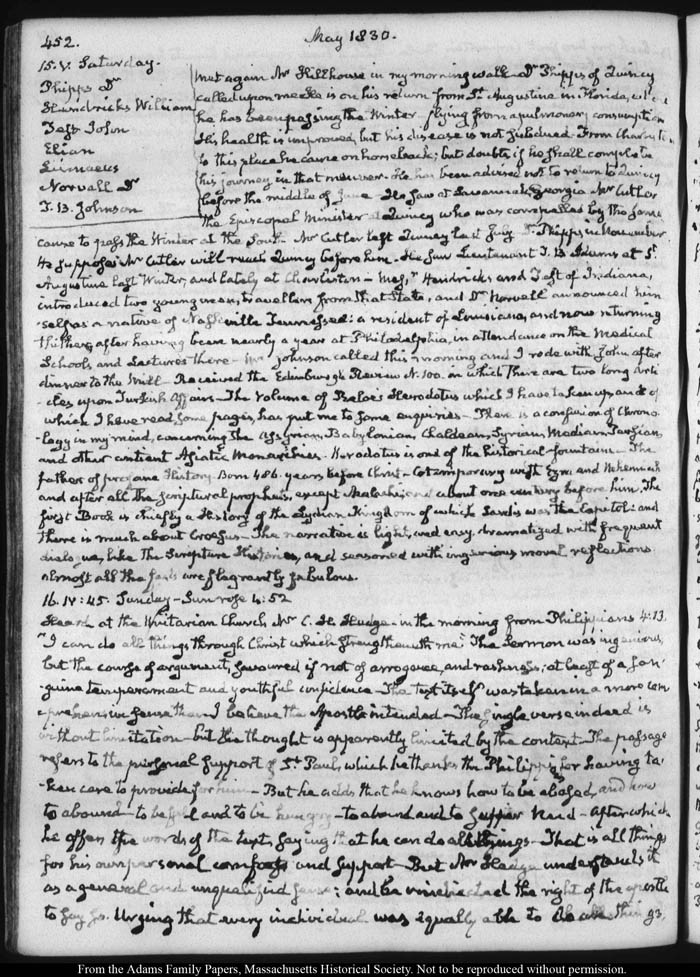 452.
May 1830.
15. V. Saturday.
Phipps Dr
Hendricks William
Taft John
Elian
Linnaeus
Norvall Dr
T. B. Johnson
met again Mr Hillhouse in my morning walk. Dr Phipps of Quincy
called upon me. He is on his return from St. Augustine in Florida, where
he has been passing the Winter flying from a pulmonary consumption
His health is improved, but his disease is not subdued. From Charleston
to this place he came on horseback; but doubts if he shall complete
his journey in that manner. He has been advised not to return to Quincy
before the middle of June. He saw at Savannah, Georgia Mr Cutler
the Episcopal Minister at Quincy who was compelled by the same
cause to pass the Winter at the South. Mr Cutler left Quincy last July Dr Phipps in November
He supposes Mr Cutler will reach Quincy before him. He saw Lieutenant T. B. Adams at St.
Augustine last Winter, and lately at Charleston — Messrs Hendricks and Taft of Indiana,
introduced two young men, travellers from that State, and Dr Norvell announced him
-self as a native of Nashville Tennessee: a resident of Louisiana, and now returning
thither, after having been nearly a year at Philadelphia, in attendance on the Medical
Schools and Lectures there — Mr Johnson called this morning and I rode with John after
dinner to the Mill — Received the Edinburgh Review N. 100. in which there are two long Arti
-cles upon Turkish Affairs — The Volume of Beloe's Herodotus which I have taken up and of
which I have read some pages, has put me to some enquiries — There is a confusion of Chrono
-logy in my mind, concerning the Assyrian, Babylonian, Chaldean, Syrian, Median, Persian
and other antient Asiatic Monarchies. Herodotus is one of the historical fountains — The
father of profane History. Born 486. years before Christ — Cotemporary with Ezra and Nehemiah
and after all the scriptural prophets, except Malachi, and about one century before him. The
first Book is chiefly a History of the Lydian Kingdom of which Sardis was the Capitol: and
there is much about Croesus — The narrative is light, and easy, dramatized with frequent
dialogue, like the Scripture Histories, and seasoned with ingenious moral reflections.
Almost all the facts are flagrantly fabulous.
16. IV: 45. Sunday — Sun rose 4:52
Heard at the Unitarian Church, Mr C. H. Hedge in the morning from Philippians 4:13.
"I can do all things through Christ which strengtheneth me" The Sermon was ingenious,
but the course of argument, savoured if not of arrogance, and rashness, at least of a san
-guine temperament and youthful confidence — The text itself was taken in a more com
-prehensive sense than I believe the Apostle intended — The single verse indeed is
without limitation — but the thought is apparently limited by the context — The passage
refers to the personal support of St. Paul, which he thanks the Philippians for having ta
-ken care to provide for him — But he adds that he knows how to be abased, and how
to abound — to be full and to be hungry — to abound and to suffer need — After which
he offers the words of the text, saying that he can do all things — That is all things
for his own personal comforts and support — But Mr Hedge understands it
as a general and unqualified sense; and he vindicated the right of the apostle
to say so. Urging that every individual was equally able to do all things.
From the Adams Family Papers, Massachusetts Historical Society. Not to be reproduced without permission.